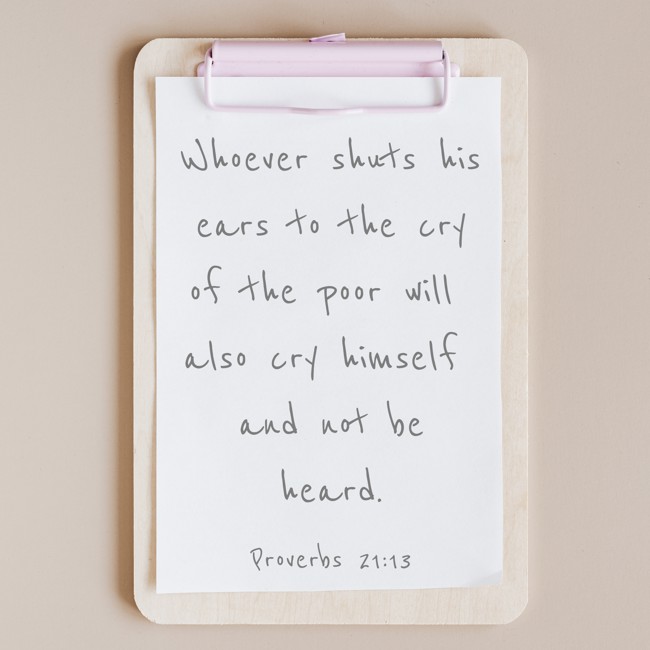 Whoever shuts his
ears to the cry
of the poor will
also cry himself
and not be
heard.
Proverbs 21:13